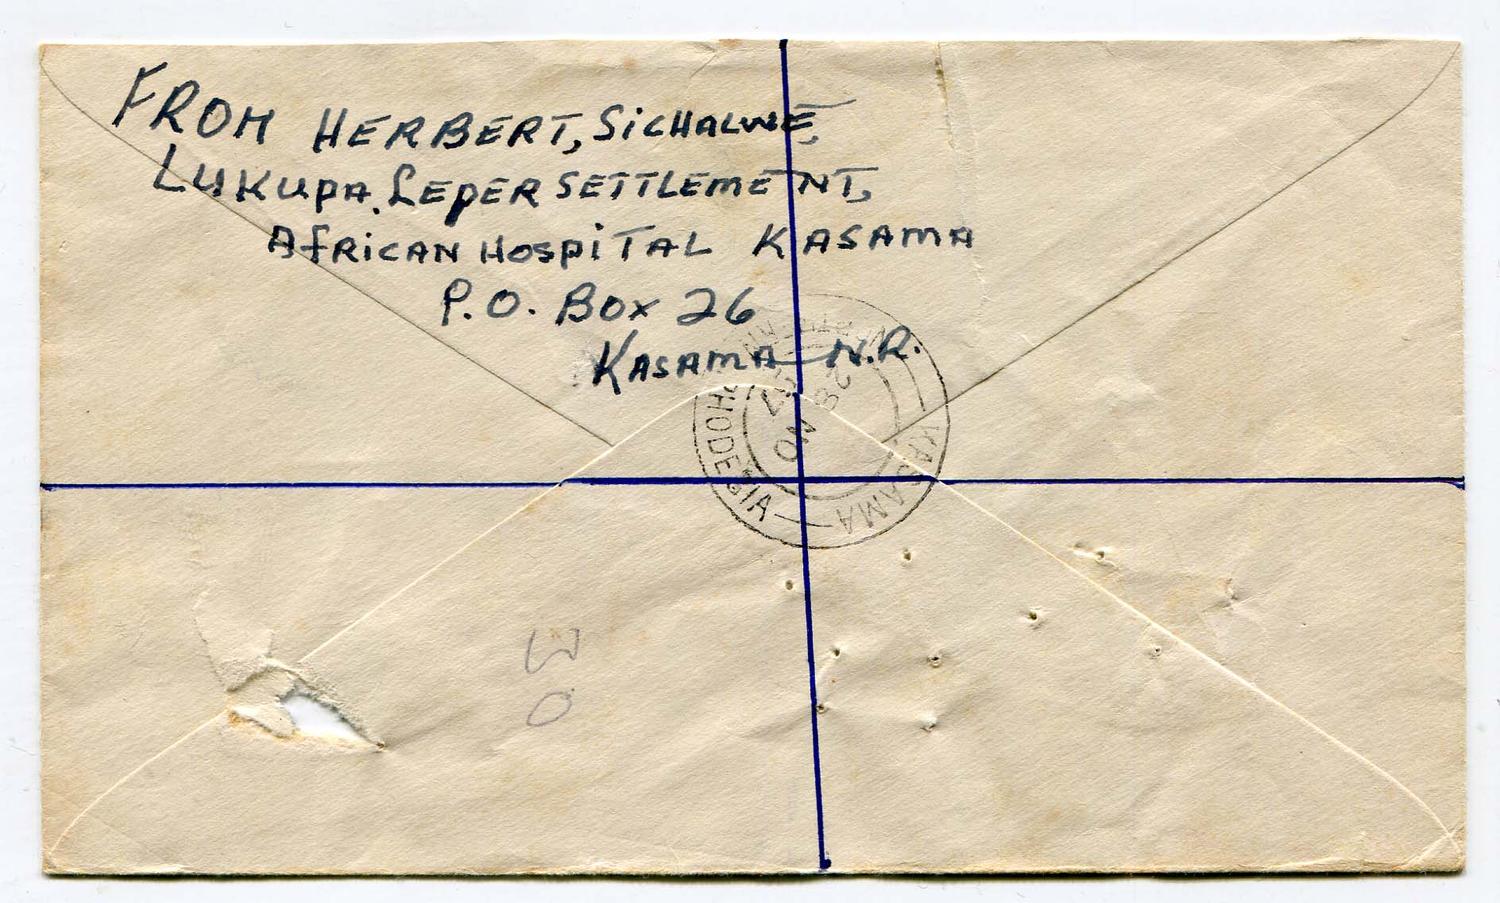 FROM HERBERT, SiCHALWE,
LUKUPA. LEPER SETTLEMENT,
AfRiCAN HOSPiTAL KASAMA
P.O. Box 26
KASAMA N.R.
KASAMA
RHODESIA
28 NO
30